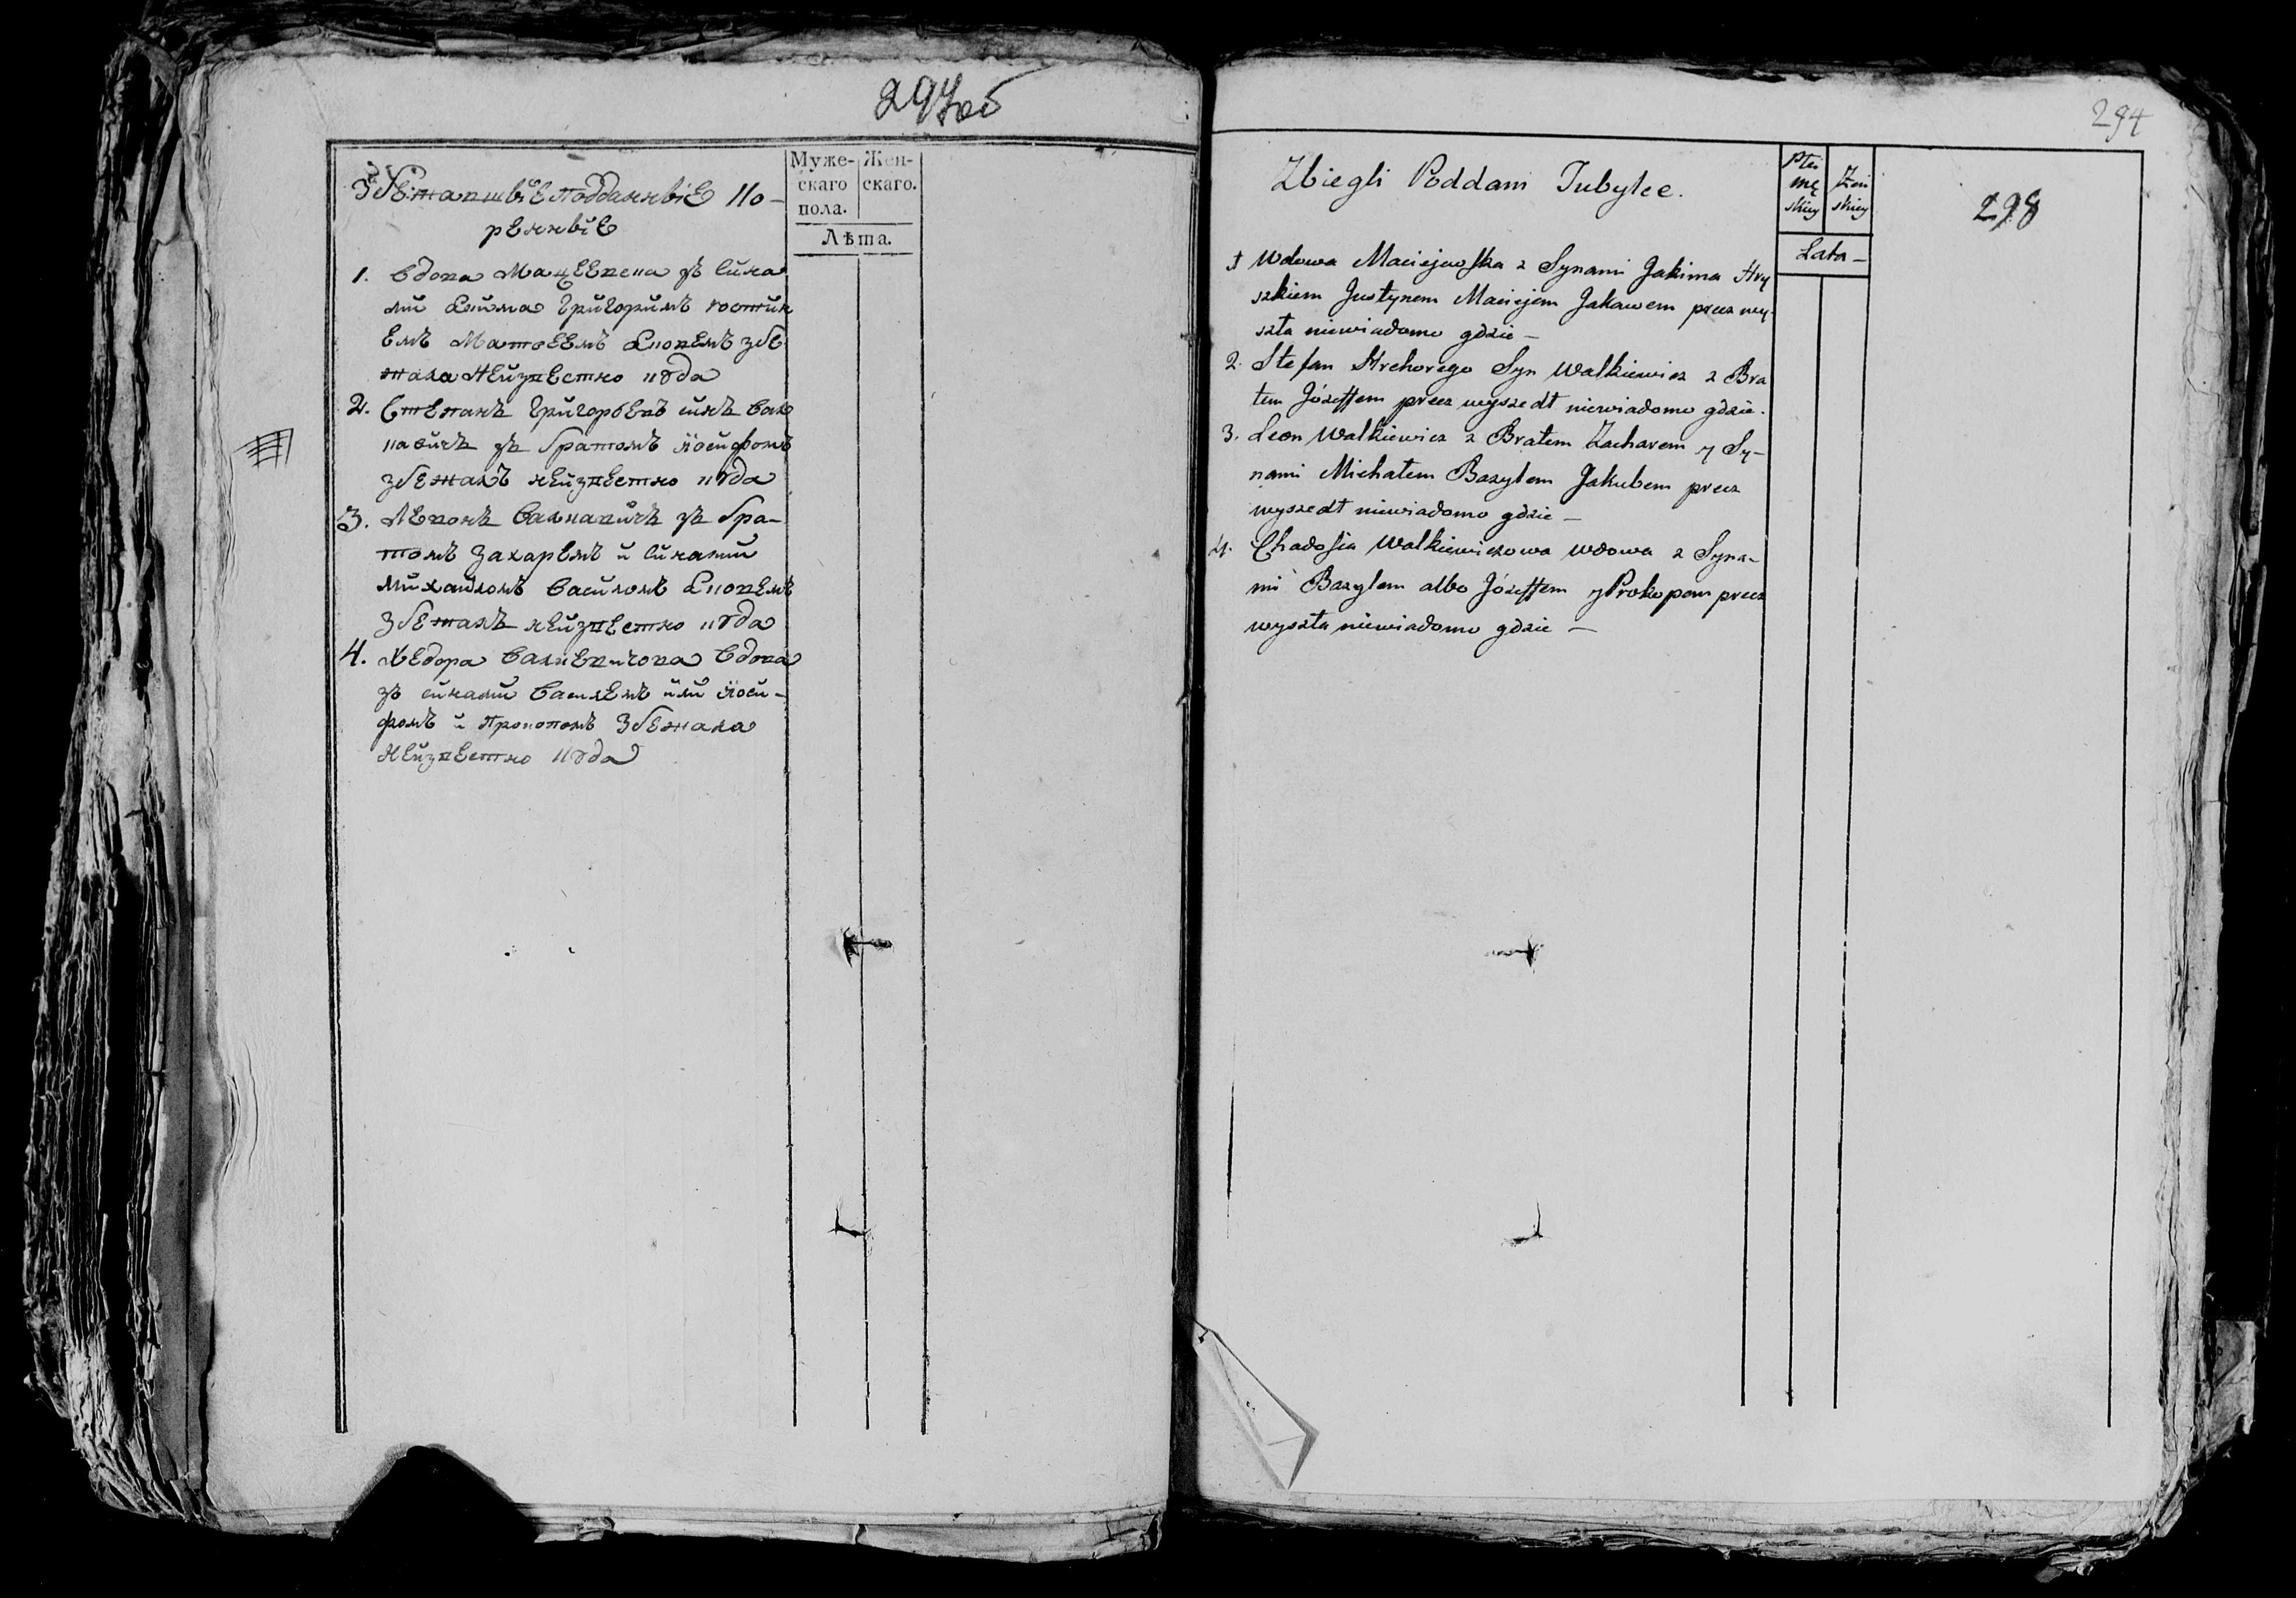 297об
Збежавшвіе подданнвіе Ко-
реннвіе
Муже-
скаго
пола.
Жен-
скаго.
Лѣта.
1. Вдова Мацеевска зъ Сина
ми Екима Григоримъ Юстин
емъ Матвеемъ Яковемъ збе
жала Неизвестно куда
2. Степанъ Григорьевъ синъ Вал
кавичъ зъ братомъ Иосифомъ
збежалъ неизвестно куда
3. Левонъ Валкавичъ зъ бра-
томъ Захаремъ и Синами
Михайломъ Василомъ Яковемъ
Збежалъ неизвестно куда
4. Хведора Валкевичова Вдова
зъ синами Василемъ или Иоси-
фомъ и Прокопомъ Збежала
Неизвестно куда
294
298
Zbiegli Poddani Tubylce.
Płci
mę
skiey
Żeń
skiey
Lata —
1 Wdowa Maciejewska z Synami Jakima Hry
szkiem Justynem Maciejem Jakawem precz wy-
szła niewiadomo gdzie —
2. Stefan Hrehorego Syn Walkiewicz z Bra
tem Józeffem precz wyszedł niewiadomo gdzie.
3. Leon Walkiewicz z Bratem Zacharem y Sy-
nami Michałem Bazylem Jakubem precz
wyszedł niewiadomo gdzie —
4. Chadosia Walkiewiczowa wdowa z Syna-
mi Bazylem albo Józeffem y Prokopem precz
wyszła niewiadomo gdzie —